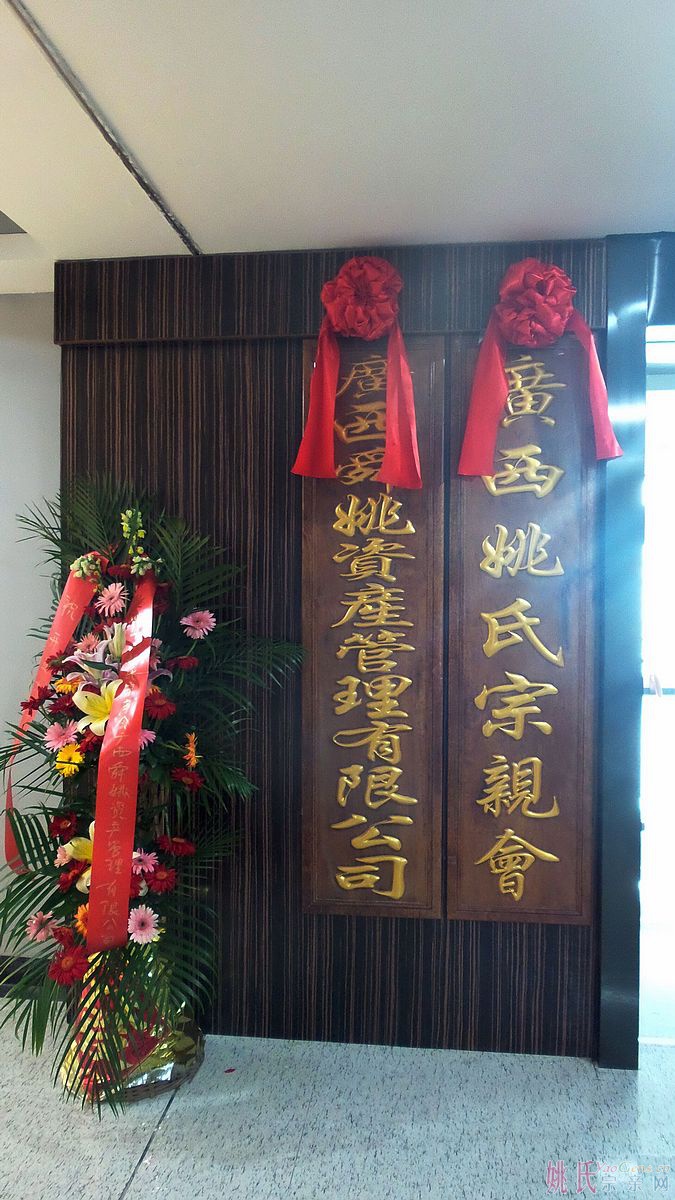 廣西姚氏宗親會
廣西舜姚資産管理有限公司
广西舜姚资产管理有限公司
姚氏宗亲网